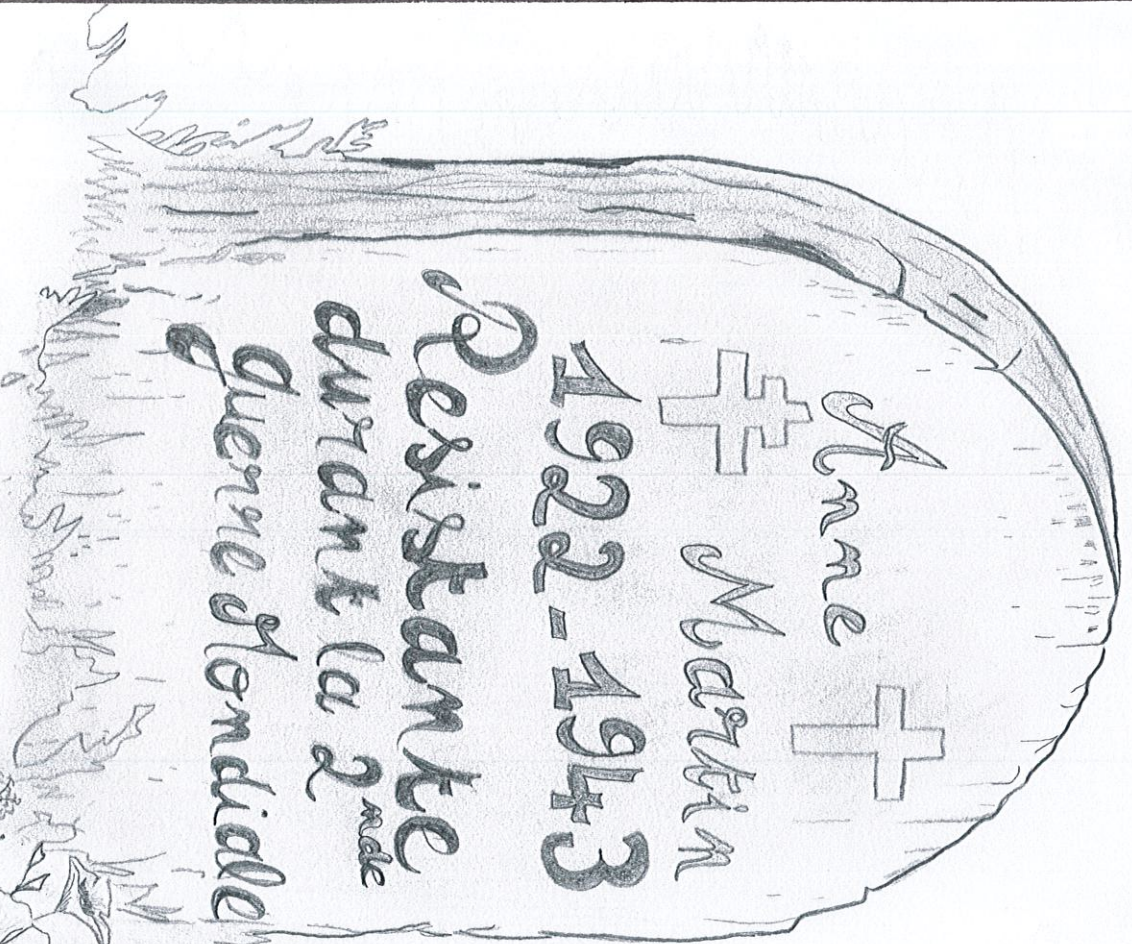 Anne
Martin
1922-1943
Resistante
durant la 2nde
guerre Mondiale